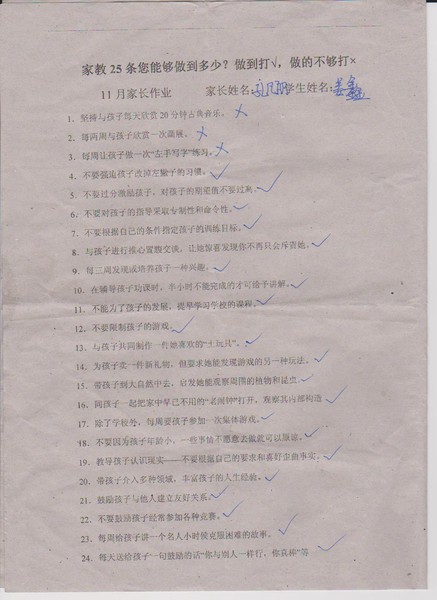 家教25条您能够做到多少？做到打√，做的不够打×
11月家长作业 家长姓名: 学生姓名:
1、坚持与孩子每天欣赏20分钟古典音乐。×
2、每两周与孩子欣赏一次画展。×
3、每周让孩子做一次“左手写字”练习。×
4、不要强迫孩子改掉左撇子的习惯。✓
5、不要过分激励孩子，对孩子的期望值不要过高。✓
6、不要对孩子的指导采取专制性和命令性。✓
7、不要根据自己的条件指定孩子的训练目标。✓
8、与孩子进行推心置腹交谈，让她惊喜发现你不再只会斥责她。✓
9、每三周发现或培养孩子一种兴趣。✓
10、在辅导孩子功课时，半小时不能完成的才可给予讲解。✓
11、不能为了孩子的发展，提早学习学校的课程。✓
12、不要限制孩子的游戏。✓
13、与孩子共同制作一件她喜欢的“土玩具”。✓
14、为孩子卖一件新礼物，但要求她能发现游戏的另一种玩法。✓
15、带孩子到大自然中去，启发她能观察周围的植物和昆虫。✓
16、同孩子一起把家中早已不用的“老闹钟”打开，观察其内部构造✓
17、除了学校外，每周要孩子参加一次集体游戏。✓
18、不要因为孩子年龄小，一些事情不愿意去做就可以原谅。✓
19、教导孩子认识现实——不要根据自己的要求和喜好歪曲事实。✓
20、带孩子介入多种领域，丰富孩子的人生经验。✓
21、鼓励孩子与他人建立友好关系。✓
22、不要鼓励孩子经常参加各种竞赛。✓
23、每周给孩子讲一个名人小时侯克服困难的故事。✓
24、每天送给孩子一句鼓励的话“你与别人一样行，你真棒”等✓